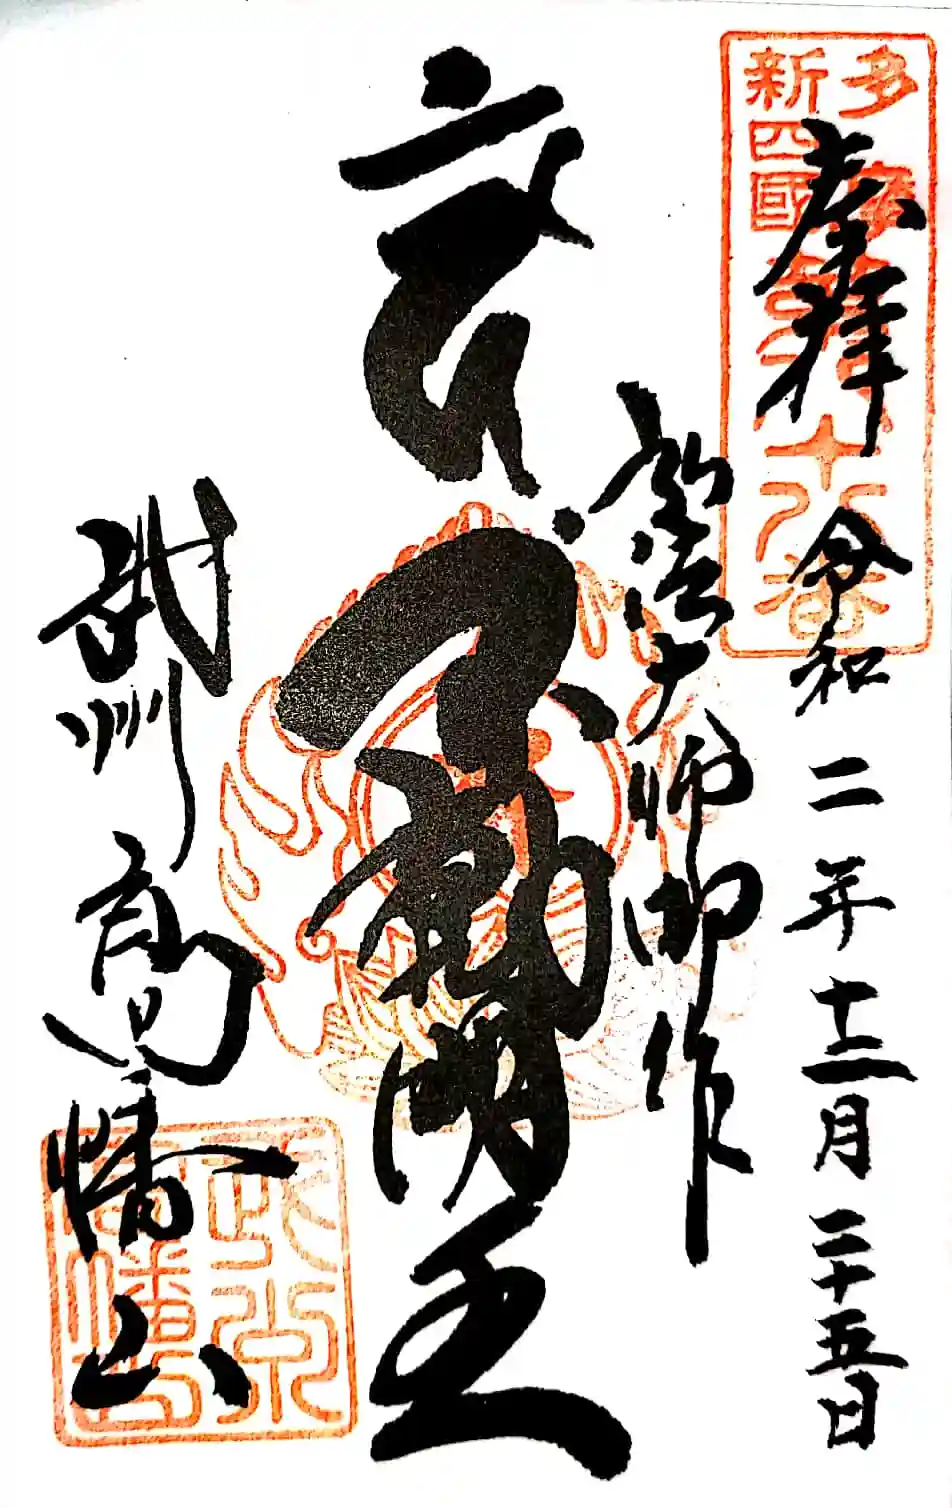 多摩
新四國
十八番
奉拝 令和二年十二月二十五日
弘法大師御作
不動明王
武州高幡山